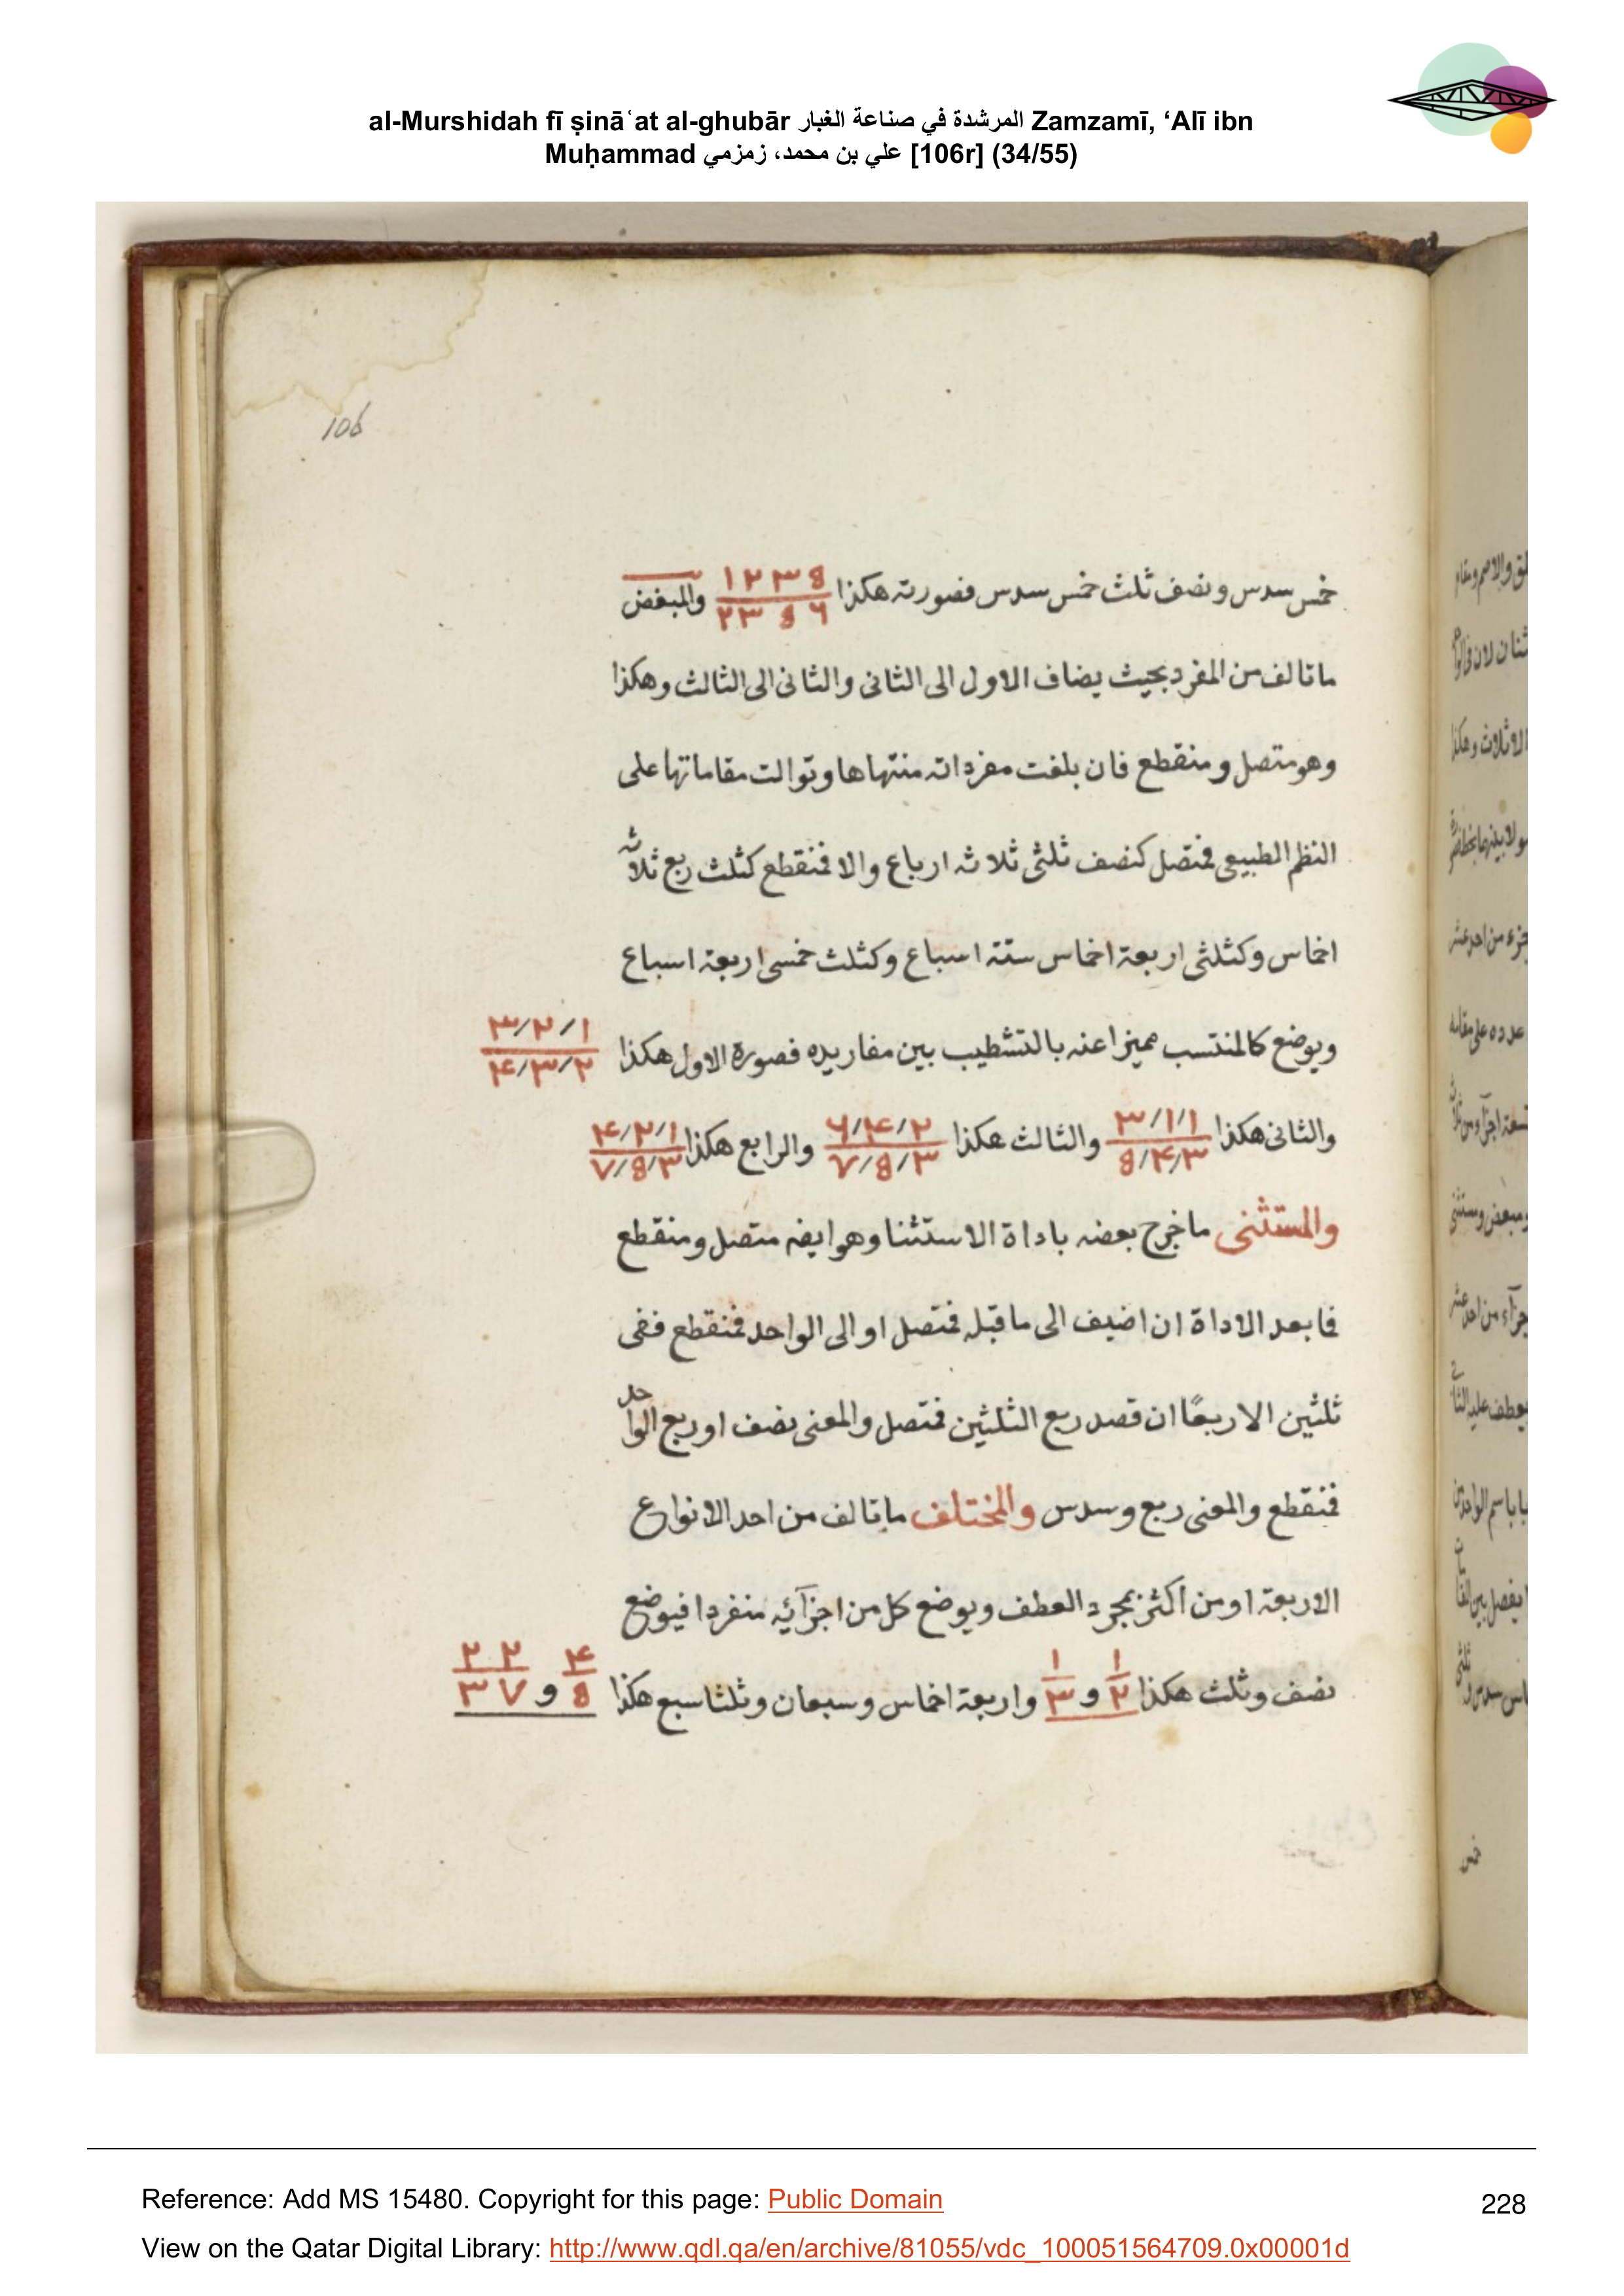 al-Murshidah fī ṣināʿat al-ghubār المرشدة في صناعة الغبار Zamzamī, ‘Alī ibn
Muḥammad علي بن محمد، زمزمي [106r] (34/55)
106
خمس سدس ونصف ثلث خمس سدس فصورته هكذا ١٢٣٥ / ٢٣٥٦ والمبعض
ما تالف من المفرد بحيث يضاف الاول الى الثانى والثانى الى الثالث وهكذا
وهو متصل ومنقطع فان بلغت مفرداته منتهاها وتوالت مقاماتها على
النظم الطبيعى فمتصل كنصف ثلثى ثلاثه ارباع والا فمنقطع كثلث ربع ثلاثه
اخماس وكثلثى اربعة اخماس ستة اسباع وكثلث خمسى اربعة اسباع
ويوضع كالمنتسب مميزا عنه بالتشطيب بين مفاريده فصورة الاول هكذا ٣/٢/١ ٤/٣/٢
والثانى هكذا ٣/١/١ ٥/٤/٣ والثالث هكذا ٦/٤/٢ ٧/٥/٣ والرابع هكذا ٤/٢/١ ٧/٥/٣
والمستثنى ما خرج بعضه باداة الاستثنا وهو ايضه متصل ومنقطع
فما بعد الاداة ان اضيف الى ما قبله فمتصل او الى الواحد فمنقطع ففى
ثلثين الا ربعًا ان قصد ربع الثلثين فمتصل والمعنى نصف او ربع الواحد
فمنقطع والمعنى ربع وسدس والمختلف ما تالف من احد الانواع
الاربعة او من اكثر بمجرد العطف ويوضع كل من اجزآئه منفردا فيوضع
نصف وثلث هكذا ١/٢ و ١/٣ واربعة اخماس وسبعان وثلثا سبع هكذا ٤/٥ و ٢٢/٣٧
Reference: Add MS 15480. Copyright for this page: Public Domain
228
View on the Qatar Digital Library: http://www.qdl.qa/en/archive/81055/vdc_100051564709.0x00001d